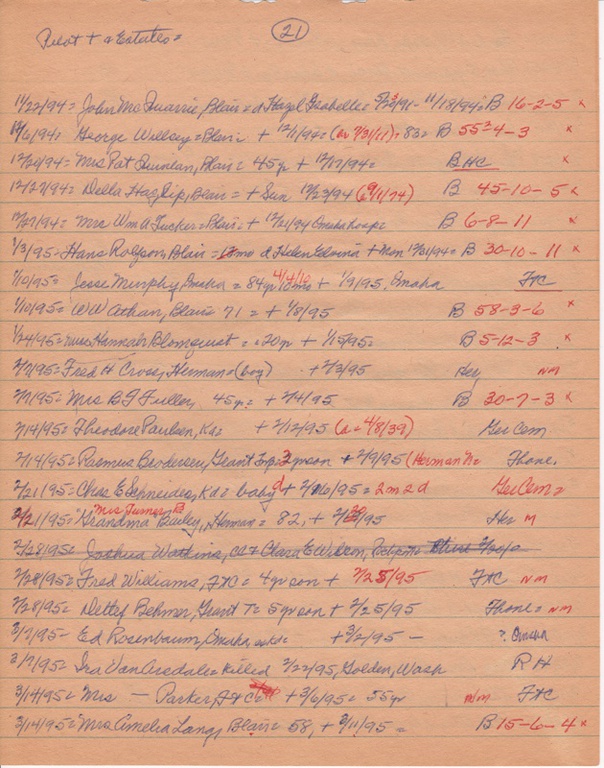 Pilot + & Estates =
21
11/22/94 = John McQuarrie, Blair = d Hazel Isabelle = 5/23/91 - 11/18/94 = B 16-2-5 x
12/6/94 = George Willsey = Blair + 12/1/94 = (a 7/31/11) = 83 = B 55-4-3 x
12/20/94 = Mrs Pat Quinlan, Blair = 45yr + 12/17/94 = B HC x
12/27/94 = Della Hazlip, Blair = + Sun 12/23/94 (6/1/74) B 45-10-5 x
12/27/94 = Mrs Wm A Tucker = Blair = + 12/21/94 Omaha hosp = B 6-8-11 x
1/3/95 = Hans Rolfson, Blair = mo d Helen + Mon 12/31/94 = B 30-10-11 x
1/10/95 = Jesse Murphy, Omaha = 84yr 10mo 4/4/10 + 1/9/95, Omaha FtC
1/10/95 = WW Athan, Blair 71 = + 1/8/95 B 58-3-6 x
1/24/95 = Mrs Hannah Blomquist = 20 + 1/15/95 = B 5-12-3 x
2/7/95 = Fred H Cross, Herman = (boy) + 2/3/95 Her nm
2/7/95 = Mrs B F Fuller, 45yr = + 2/4/95 B 30-7-3 x
2/14/95 = Theodore Paulsen, Ka = + 2/12/95 (a = 4/8/39) Ger Cem.
2/14/95 = Rasmus Brodersen, Grant Twp = 3yr son + 2/9/95 (Herman N = Fhone,
2/21/95 = Chas E Schneider, Kd = baby d + 2/16/95 = 2m 2d Ger Cem =
2/21/95 = "Grandma Mrs Turner B Bailey, Herman = 82, + 2/20/95 Her m
2/28/95 = Joshua Watkins, CC & Clara E Wilson, Petition 2/20/0
2/28/95 = Fred Williams, FtC = 4yr son + 2/25/95 FtC nm
2/28/95 = Detlef Behmer, Grant T = 5yr son + 2/25/95 Fhone = nm
3/7/95 = Ed Rosenbaum, Omaha + 3/2/95 - ? Omaha
3/7/95 = Ira VanArsdale = killed 2/22/95, Golden, Wash R H
3/14/95 = Mrs — Parker, FtC + 3/6/95 = 55yr nm FtC
3/14/95 = Mrs Amelia Lang, Blair = 58, + 3/11/95 = B 15-6-4 x